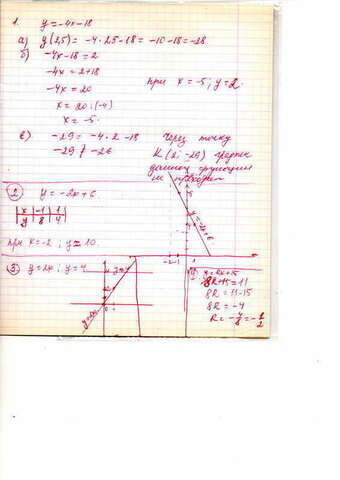 1. y = -4x - 18
а) y(2,5) = -4 · 2,5 - 18 = -10 - 18 = -28
б) -4x - 18 = 2
-4x = 2 + 18
-4x = 20
x = 20 : (-4)
x = -5.
при x = -5; y = 2.
в) -29 = -4 · 2 - 18
-29 ≠ -26
Через точку
K (2; -29) график
данной функции
не проходит
2 y = -2x + 6
x | -1 | 1
y | 8 | 4
при x = -2; y = 10.
y = -2x + 6
-2 -1 1
3) y = 2x; y = 4
y = 4
y = 2x
0 1
y = kx + 15
8k + 15 = 11
8k = 11 - 15
8k = -4
k = -4/8 = -1/2